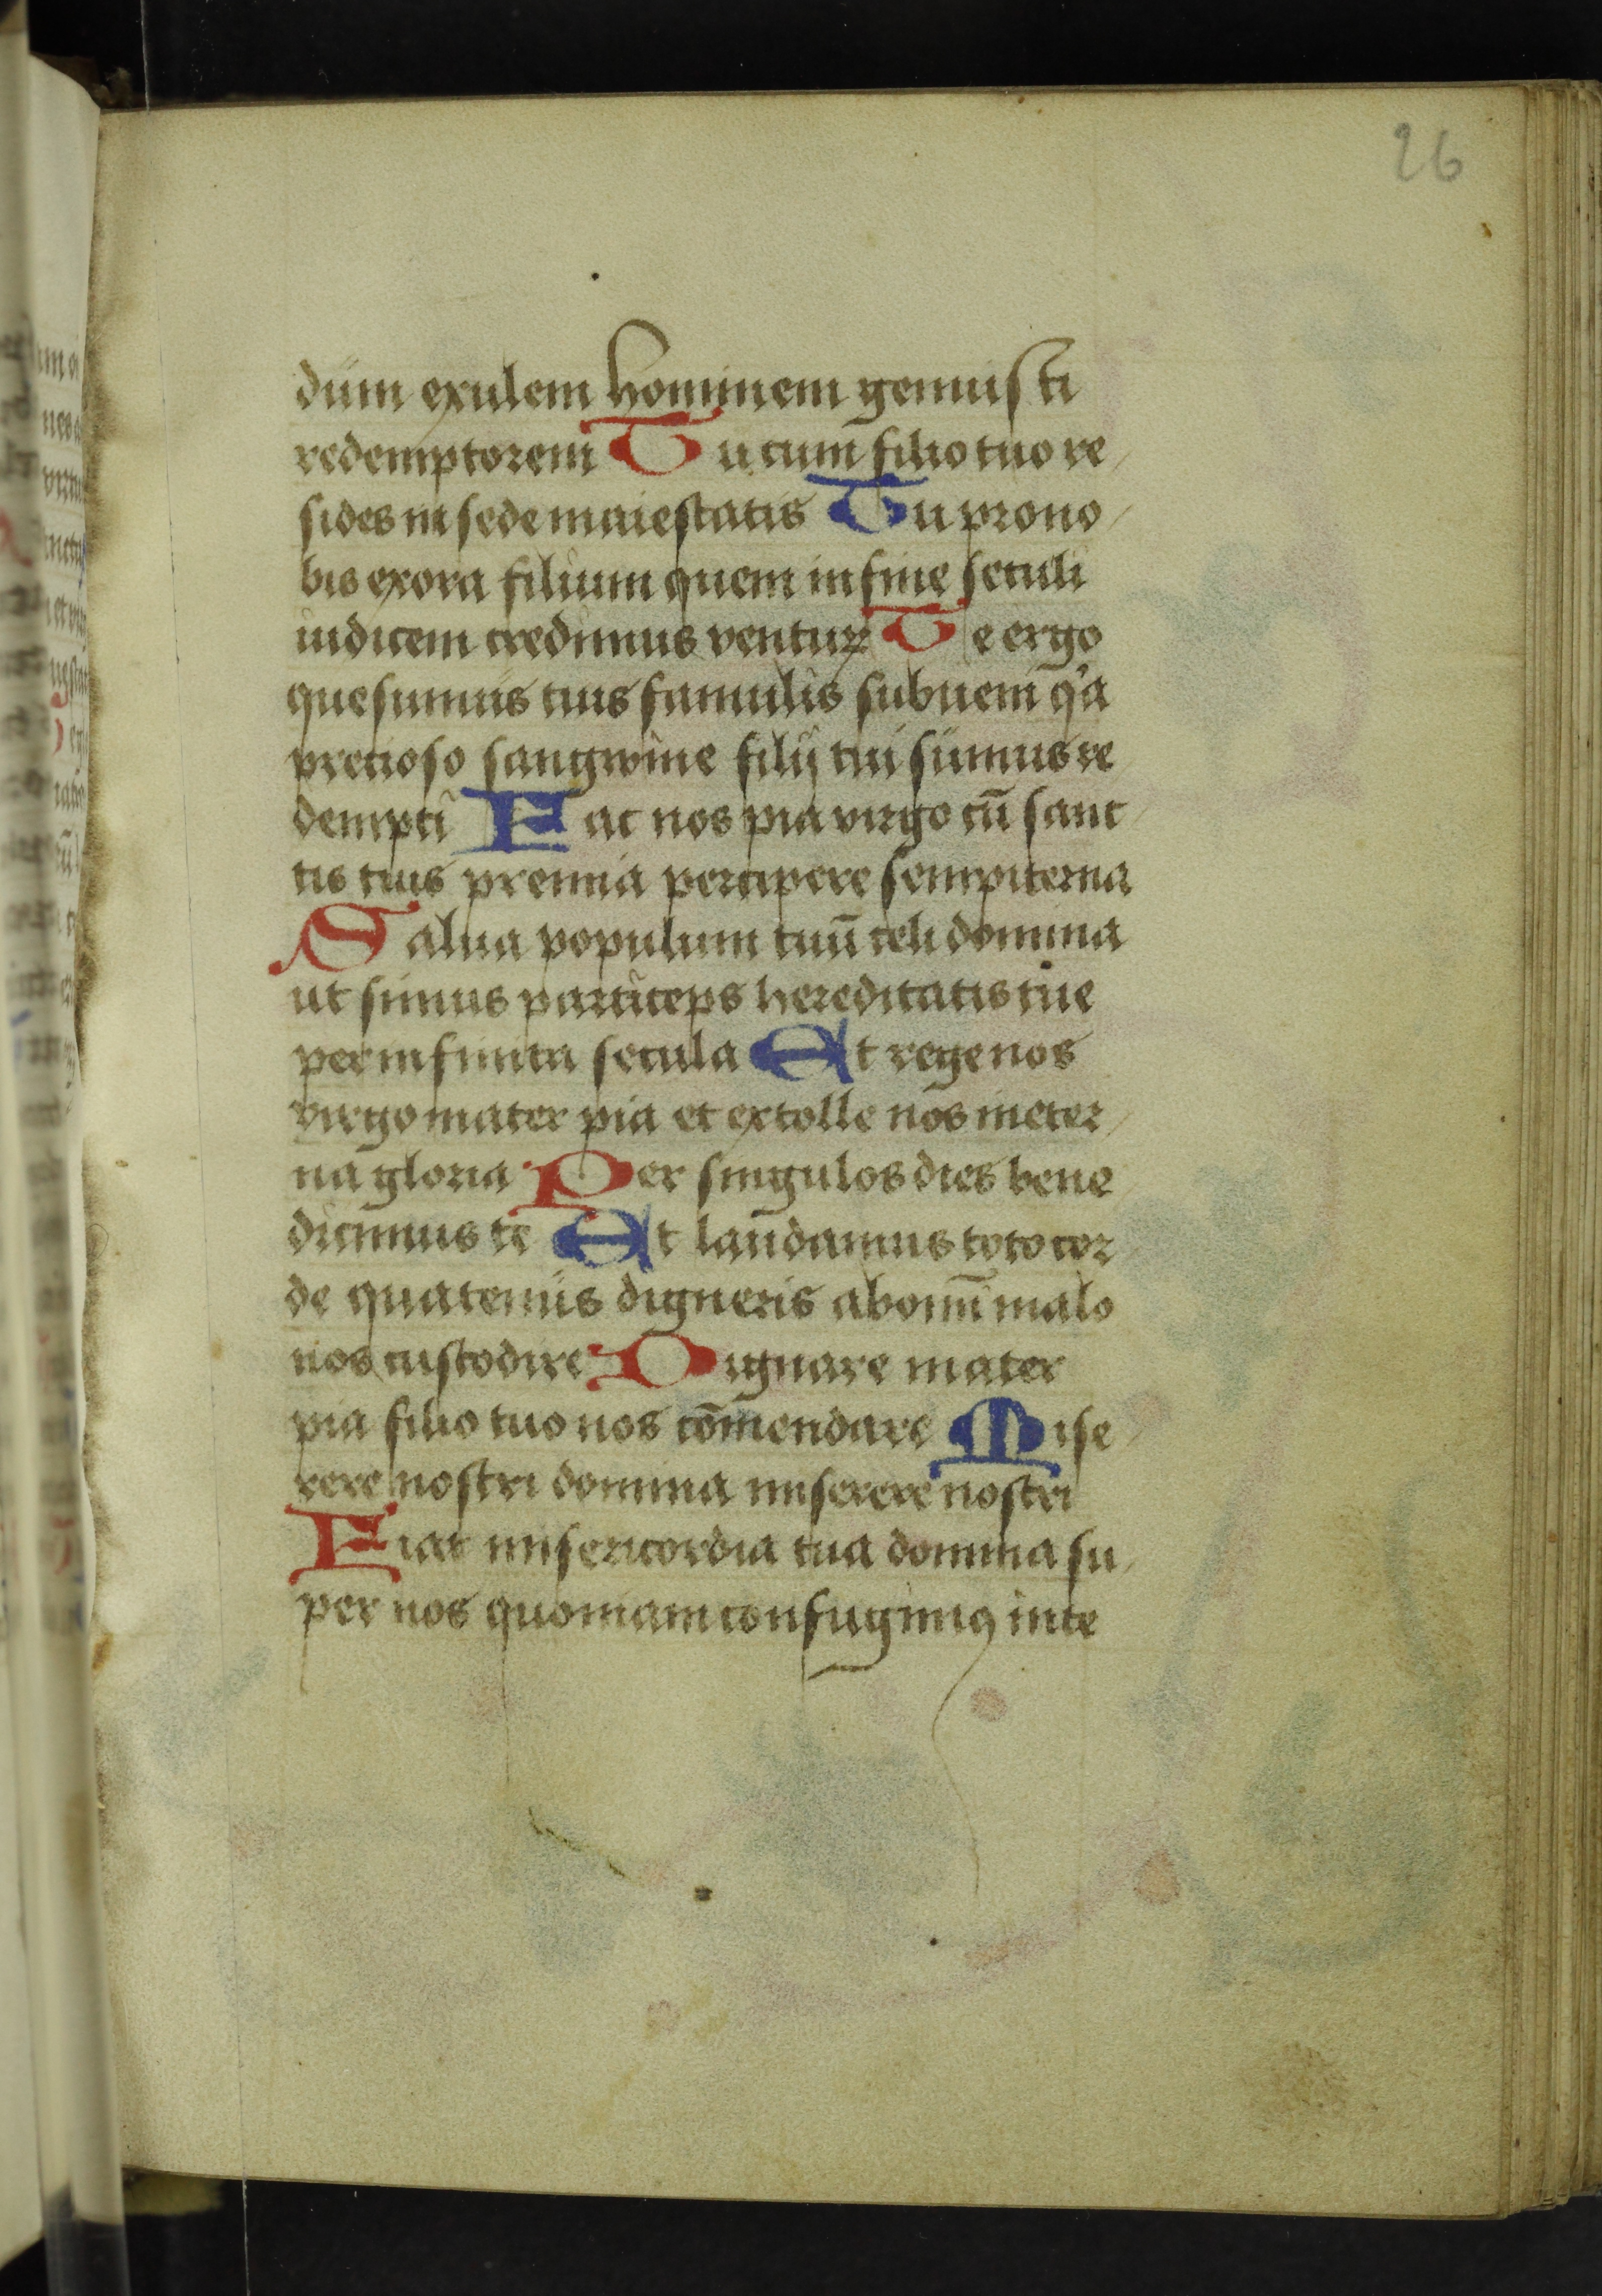 26
dum exulem hominem genuisti
redemptorem Tu cum filio tuo re
sides in sede maiestatis Tu pro no
bis exora filium quem in fine seculi
iudicem credimus ventuꝝ Te ergo
quesumus tuis famulis subueni qͥa
precioso sangwine filij tui sumus re
dempti Fac nos pia virgo cū sanc
tis tuis premia percipere sempiterna
Salua populum tuū celi domina
ut simus particeps hereditatis tue
per infinita secula Et rege nos
virgo mater pia et extolle nos in eter
na gloria Per singulos dies bene
dicimus te Et laudamus toto cor
de quatenus digneris ab omī malo
nos custodire Dignare mater
pia filio tuo nos cōmendare Mise
rere nostri domina miserere nostri
Fiat misericordia tua domina su
per nos quoniam confugimꝯ in te